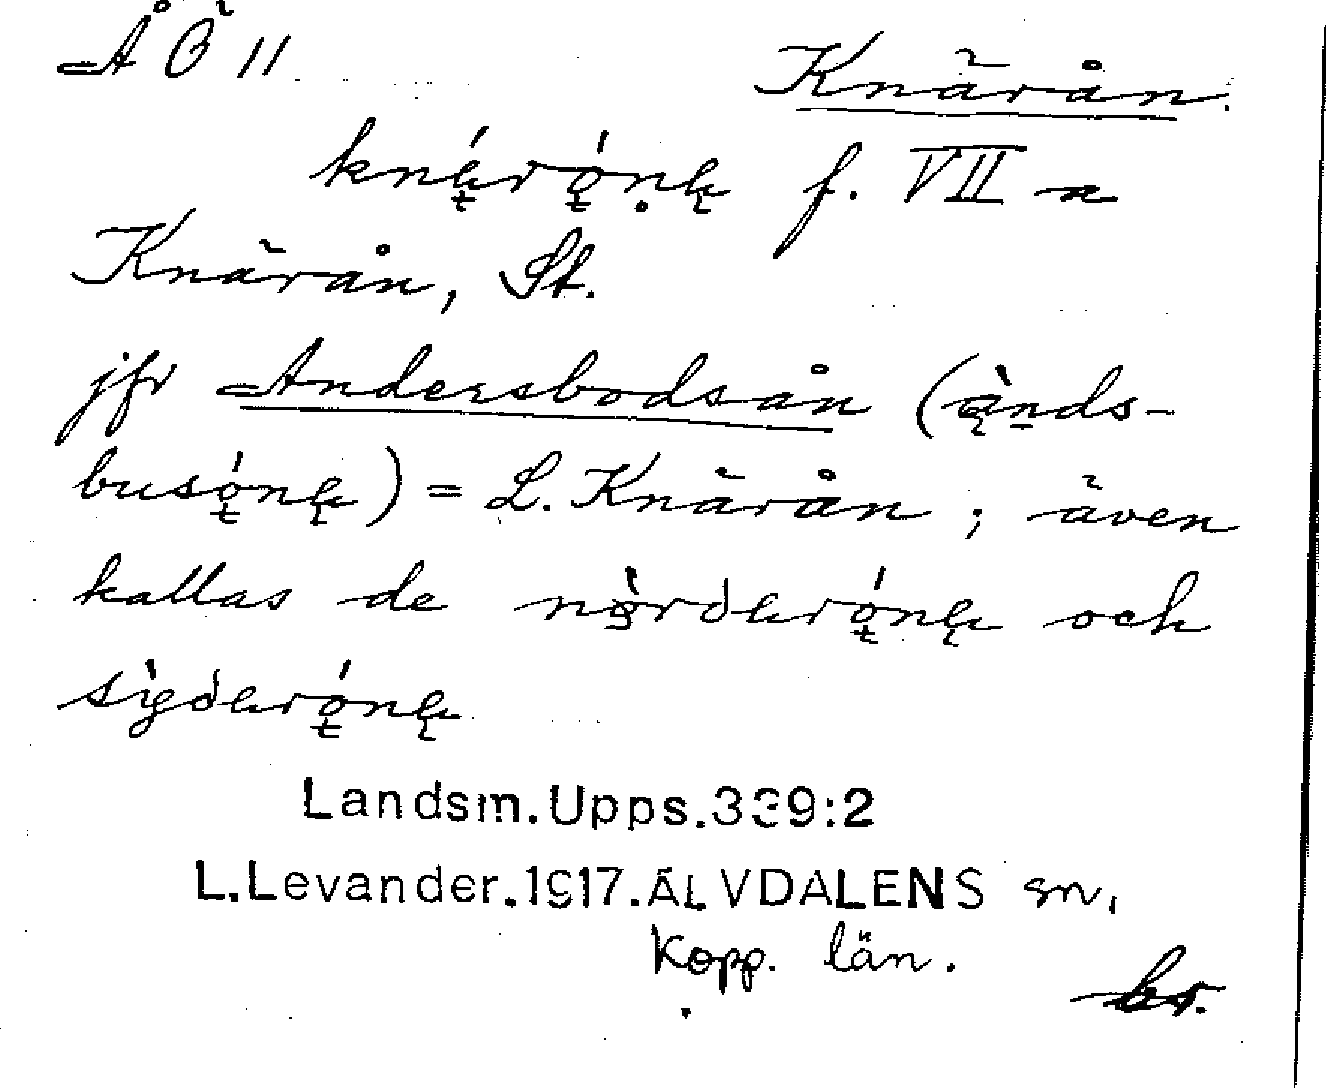 ÅÖ 11
Knärån
knę́rǫ́nę f. VII a
Knärån, St.
jfr Andersbodsån (ą̀nds-
busǫ́nę) = L. Knärån ; även
kallas de nɔ̀rdęrǫ́nę och
sỳdęrǫ́nę
Landsm.Upps.339:2
L.Levander.1917.ÄLVDALENS sn,
Kopp. län.